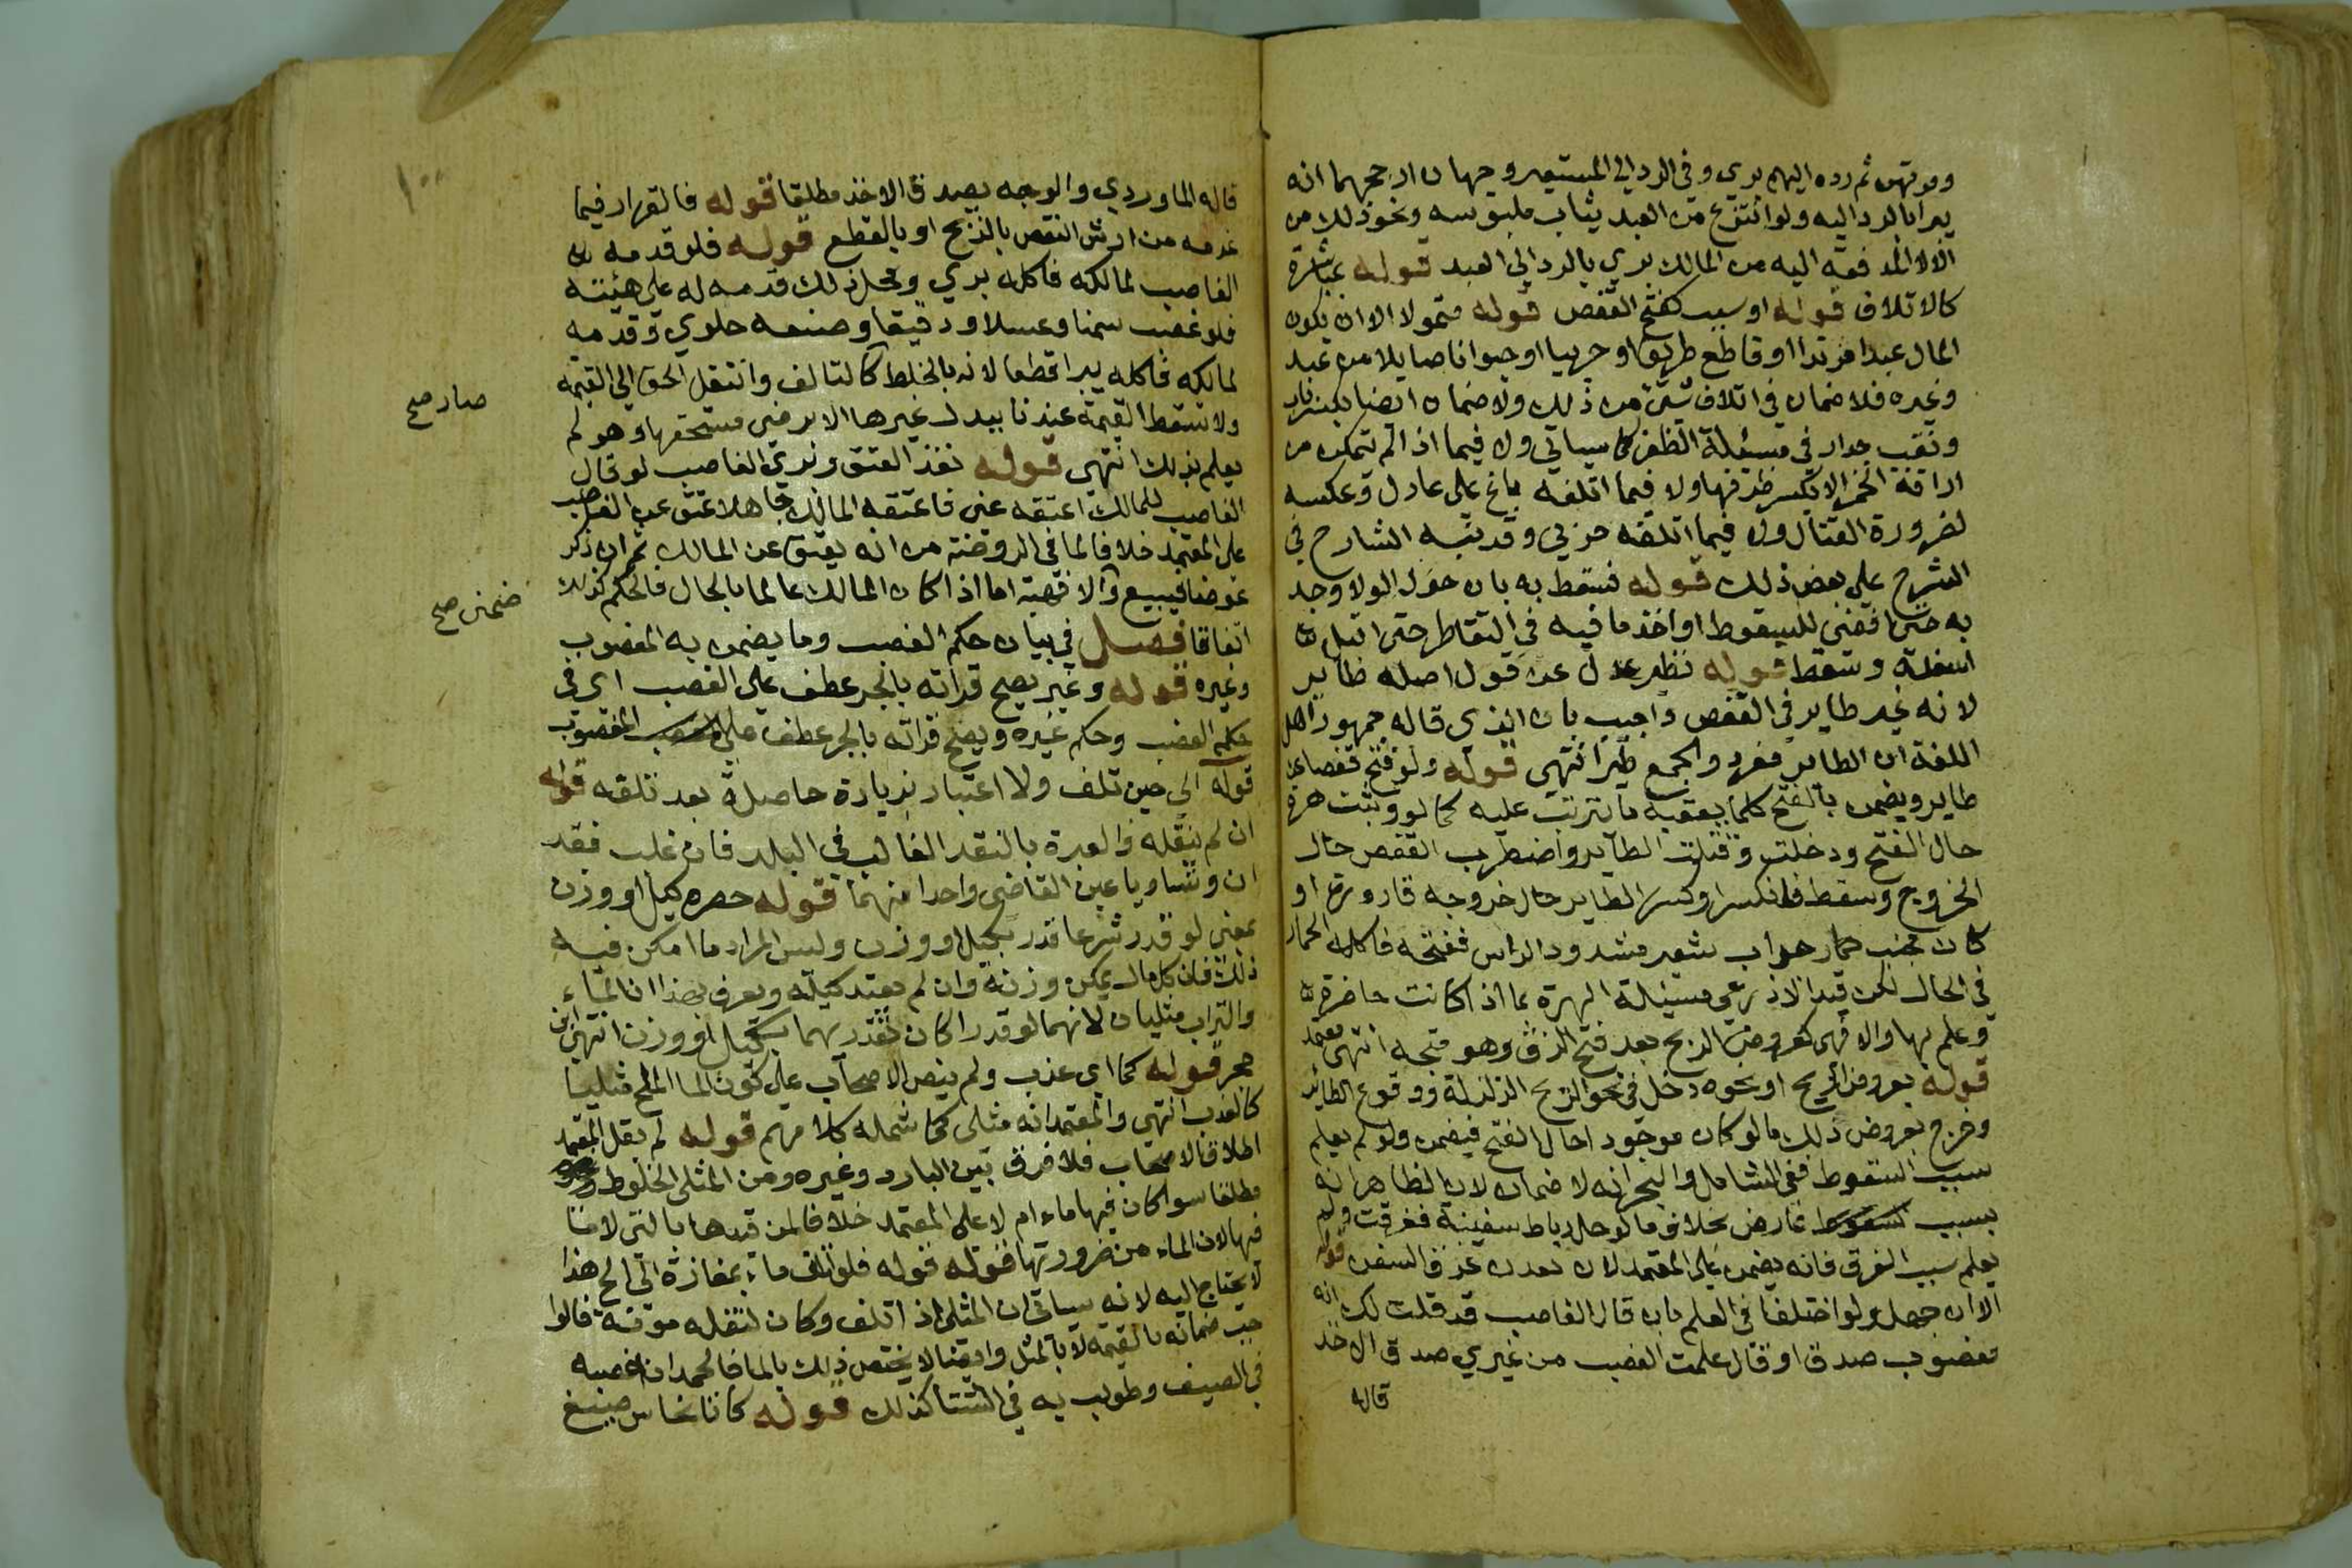 ومرتهن ثم رده اليهم بري وفي الرد الي المستعير وجهان ارجحهما انه
يبرا بالرد اليه ولو انتزع من العبد ثياب ملبوسه ونحو ذلك من
الالات المدفعه اليه من المالك بري بالرد الي العبد قوله مباشرة
كالاتلاف قوله او سبب كفتح القفص قوله متمولا الا ان يكون
المال عبدا مرتدا او قاطع طريق او حربيا او حيوانا صايلا من عبد
وغيره فلا ضمان في اتلاف شي من ذلك ولا ضمان ايضا بكسر باب
ونقب جدار في مسئلة الظفر كما سياتي ولا فيما اذا لم تتمكن من
اراقة الخمر الا بكسر ظرفها ولا فيما اتلفه باغ علي عادل وعكسه
لضرورة القتال ولا فيما اتلفه حربي وقد نبه الشارح في
الشرح علي بعض ذلك قوله فسقط به بان حول الولا وجد
به حتي افضي للسقوط او اخذ ما فيه في التقاطر حتي ابتل
اسفله وسقط قوله نظير عدل عن قول اصله طاير
لانه غير طاير في القفص واجيب بان الذي قاله جمهور اهل
اللغة ان الطاير مفرد والجمع طير انتهي قوله ولو فتح قفصا عن
طاير ويضمن بالفتح كلما يعقبه ما يترتب عليه كما لو وثبت هرة
حال الفتح ودخلت وقتلت الطاير واضطرب القفص حال
الخروج وسقط فانكسر او كسر الطاير حال خروجه قارورة او
كان بجنب حمار جراب شعير مشدود الراس ففتحه فاكله الحمار
في الحال لكن قيد الاذرعي مسئلة الهرة بما اذا كانت حاضرة
وعلم بها والا فهي كعروض الريح بعد فتح الزق وهو متجه انتهي معتمد
قوله بعروض الريح او نحوه دخل في نحو الريح الزلزلة ووقوع الطاير
وخرج بعروض ذلك ما لو كان موجودا حال الفتح فيضمن ولو لم يعلم
سبب السقوط ففي الشامل والبحر انه لا ضمان لان الظاهر انه
بسبب عارض بخلاف ما لو حل رباط سفينة فغرقت ولم
يعلم سبب الغرق فانه يضمن علي المعتمد لان غرق السفن قوله
الا ان جهل ولو اختلفا في العلم بان قال الغاصب قد قلت لك انه
مغصوب صدق او قال علمت الغصب من غيري صدق الاخذ
قاله
قاله الماوردي والوجه يصدق الاخذ مطلقا قوله فالقرار فيما
غرمه من ارش النقص بالذبح او بالقطع قوله فلو قدمه
الغاصب لمالكه فاكله بري ومحل ذلك قدمه له علي هيئته
فلو غصب سمنا وعسلا ودقيقا وصنعه حلوي وقدمه
لمالكه فاكله يبرا قطعا لانه بالخلط كالتالف وانتقل الحق الي القيمة
ولا تسقط القيمة عندنا ببدل غيرها الا برضي مستحقها وهو لم
يعلم بذلك انتهي قوله نفذ العتق وبري الغاصب لو قال
الغاصب للمالك اعتقه عني فاعتقه المالك جاهلا عتق عن الغاصب
علي المعتمد خلافا لما في الروضة من انه يعتق عن المالك ثم ان ذكر
عوضا فبيع والا فهبة اما اذا كان المالك عالما بالحال فالحكم كذلك
اتفاقا فصل في بيان حكم الغصب وما يضمن به المغصوب
وغيره قوله وغير يصح قراته بالجر عطف علي الغصب اي في
حكم الغصب وحكم غيره ويصح قراته بالجر عطف علي المغصوب
قوله الي حين تلف ولا اعتبار بزيادة حاصلة بعد تلفه قوله
ان لم ينقله والعبرة بالنقد الغالب في البلد فان غلب نقد
ان وتساويا عين القاضي واحدا منهما قوله حصره كيل او وزن
بمعني لو قدر شرعا قدر بكيل او وزن وليس المراد ما امكن فيه
ذلك فان كل مال يمكن وزنه وان لم يعتد كيله ويعرف بهذا ان الماء
والتراب مثليان لانهما لو قدرا كان تقديرهما بكيل او وزن انتهي ابن
حجر قوله كما اي عذب ولم ينص الاصحاب علي كون الما الملح مثليا
كالعذب انتهي والمعتمد انه مثلي كما شمله كلامهم قوله لم يقل المعتمد
اطلاق الاصحاب فلا فرق بين البارد وغيره ومن المثلي الخلوط
مطلقا سوا كان فيها ماء ام لا علي المعتمد خلافا لمن قيدها بالتي لا ما
فيها لان الماء من ضرورتها قوله قوله فلو اتلف ماء بمفازة الي الخ هذا
لا يحتاج اليه لانه سياتي ان المثلي اذا تلف وكان لنقله مونة قالوا
جب ضمانه بالقيمة لا بالمثل وايضا لا يختص ذلك بالما فالجمد ان غصبه
في الصيف وطولب به في الشتا كذلك قوله كاناء نحاس صيغ
صار صح
ضمني صح
١٠٠